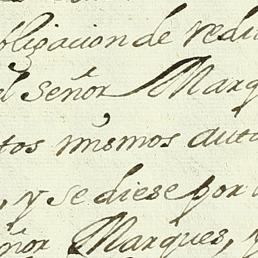 bligacion de redi
el señor Marq
tos mismos auto
, y se diese por
eñor Marques, y